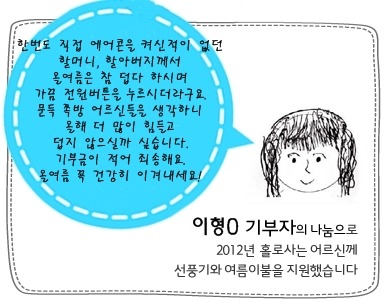 한번도 직접 에어콘을 켜신적이 없던
할머니, 할아버지께서
올여름은 참 덥다 하시며
가끔 전원버튼을 누르시더라구요.
문득 쪽방 어르신들을 생각하니
올해 더 많이 힘들고
덥지 않으실까 싶습니다.
기부금이 적어 죄송해요.
올여름 꼭 건강히 이겨내세요!
이형0 기부자의 나눔으로
2012년 홀로사는 어르신께
선풍기와 여름이불을 지원했습니다